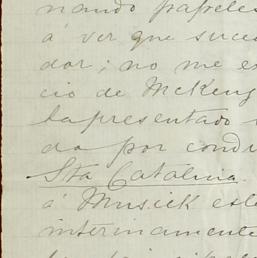 nando papeles
á ver que suce
dor; no me es
cio de McKenz
la presentado
do por condu
Sta Catalina.
á Musick este
interinamente